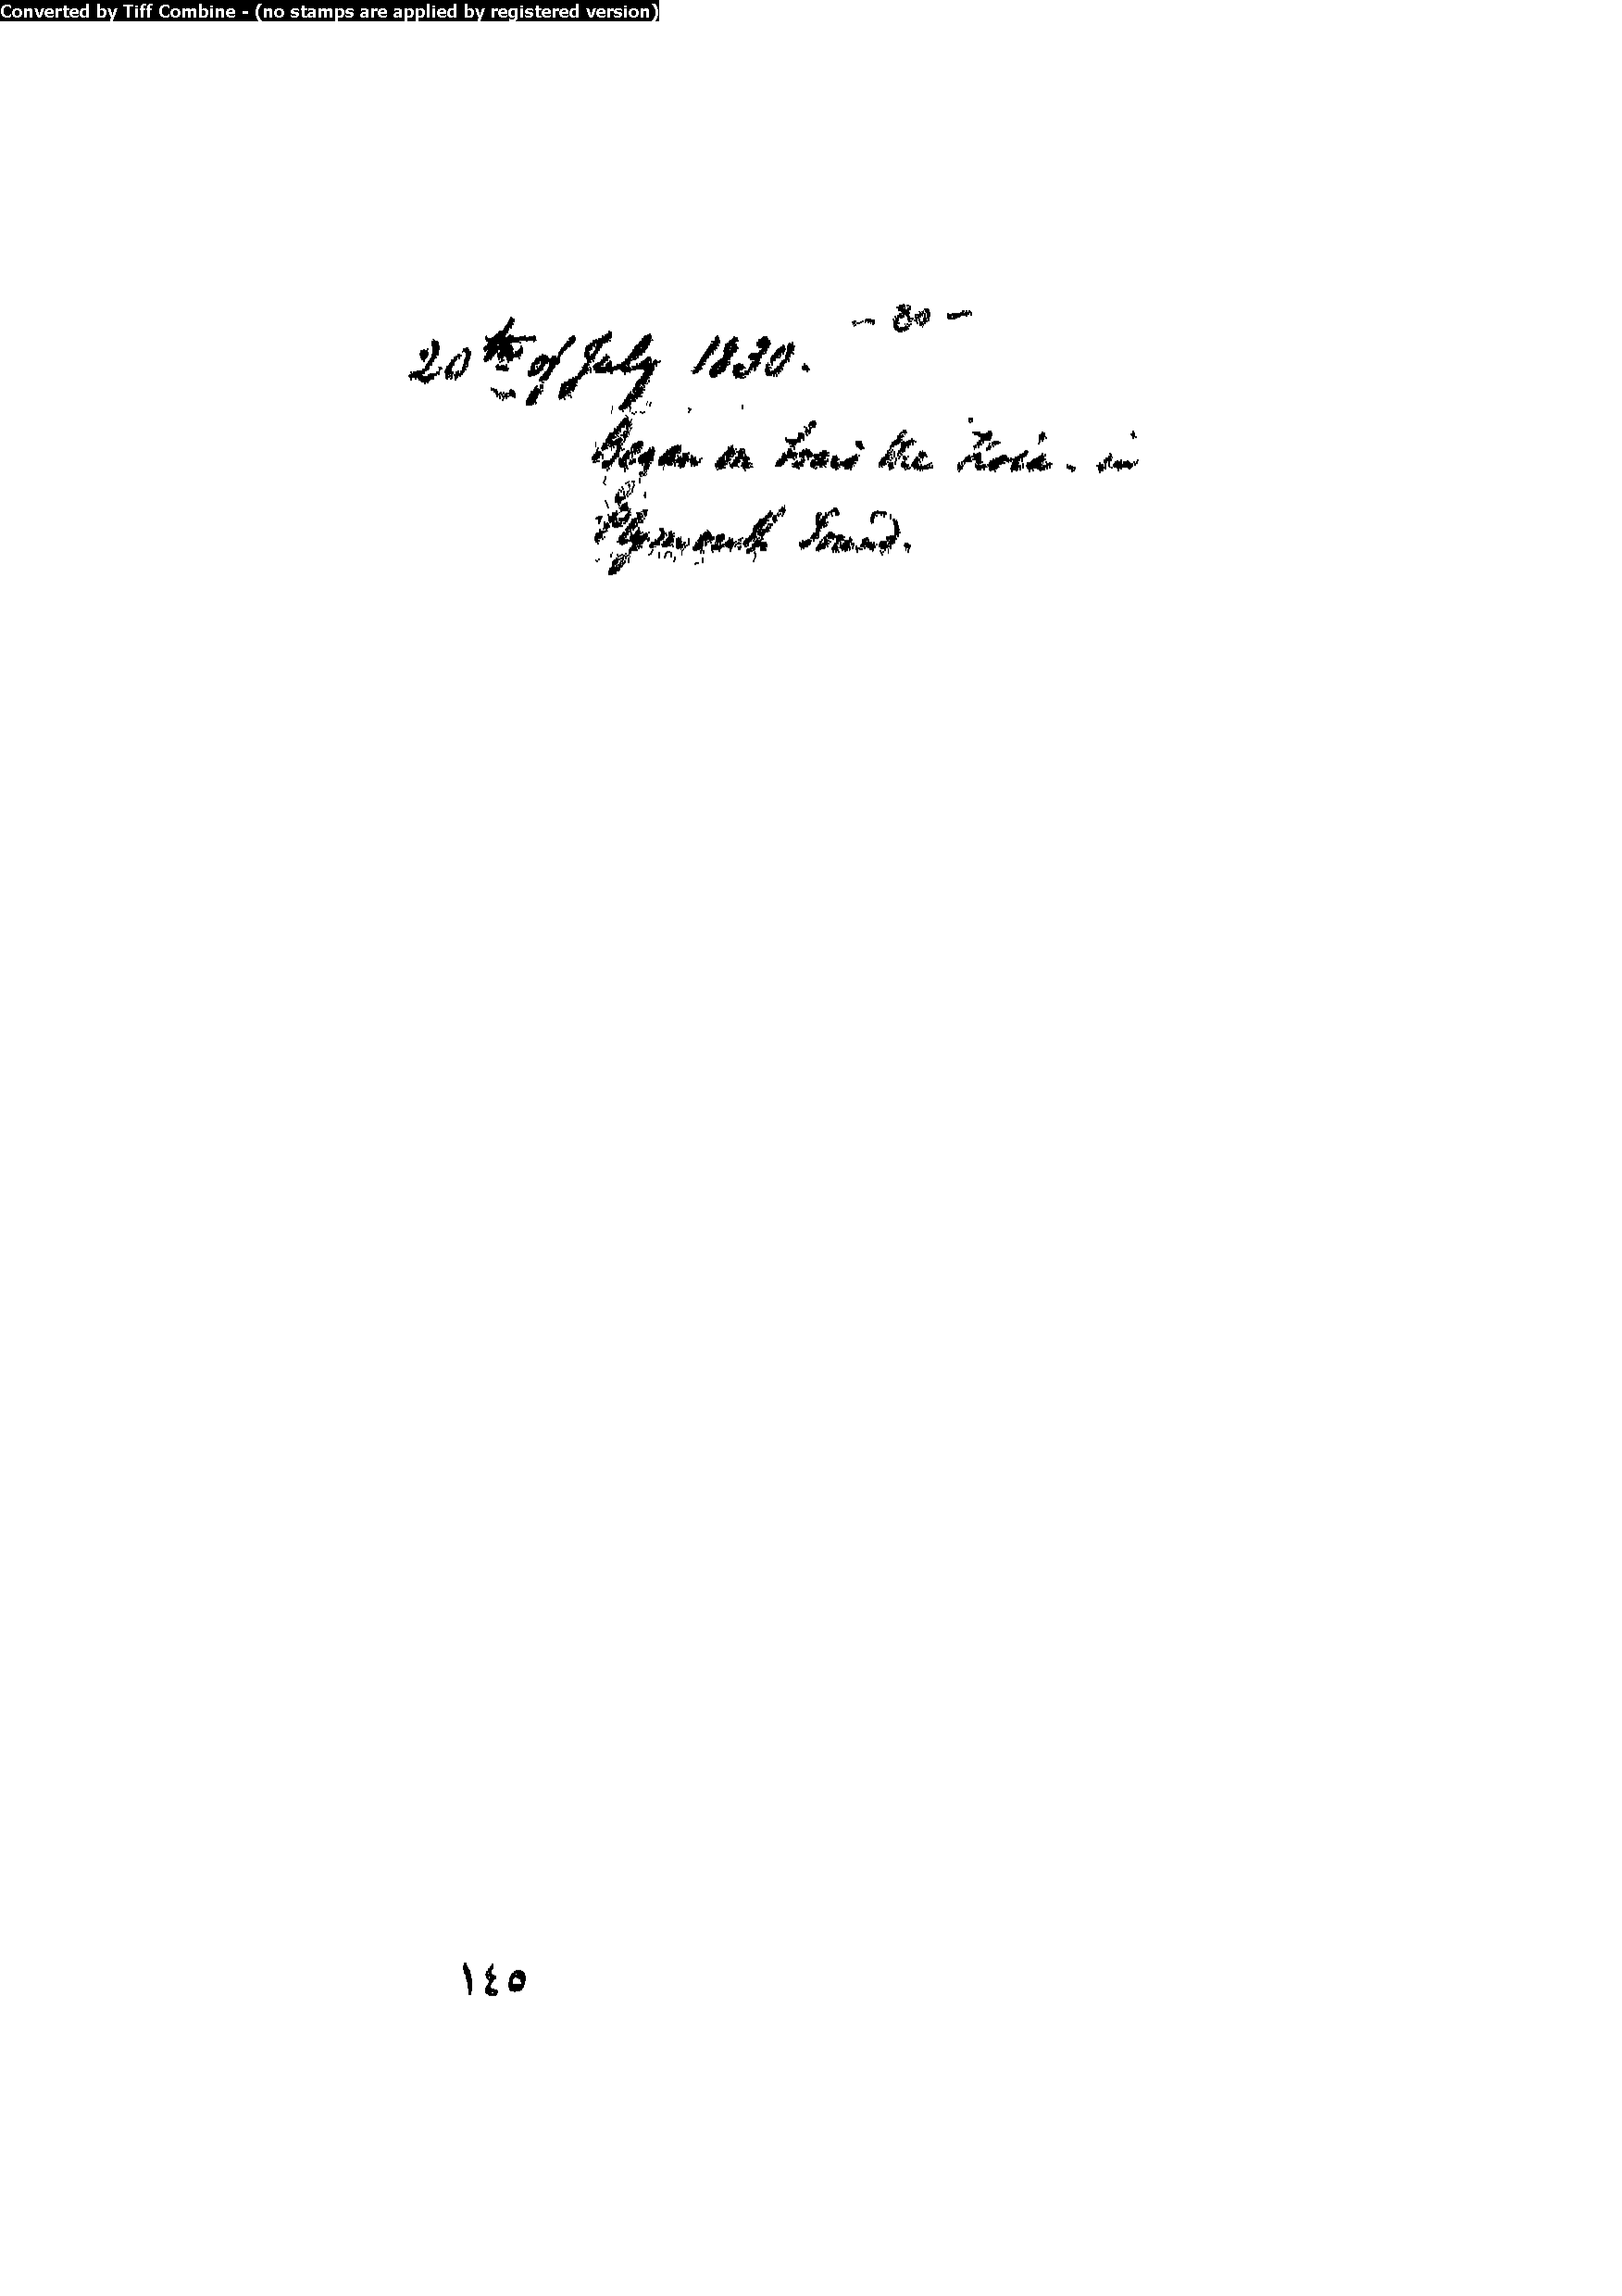 Converted by Tiff Combine - (no stamps are applied by registered version)
- 80 -
20th of July 1830.
Began on board the in
Plymouth Sound.
١٤٥